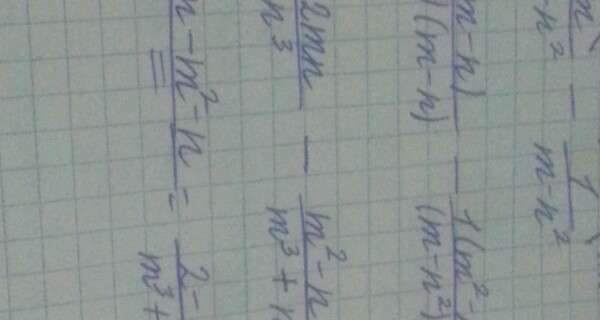 m/-n² - 1/(m-n²)
m-n)/(m-n) - 1(m²-/(m-n²)
2mn/n³ - m²-n/m³+
n-m²-n = 2-/m³+